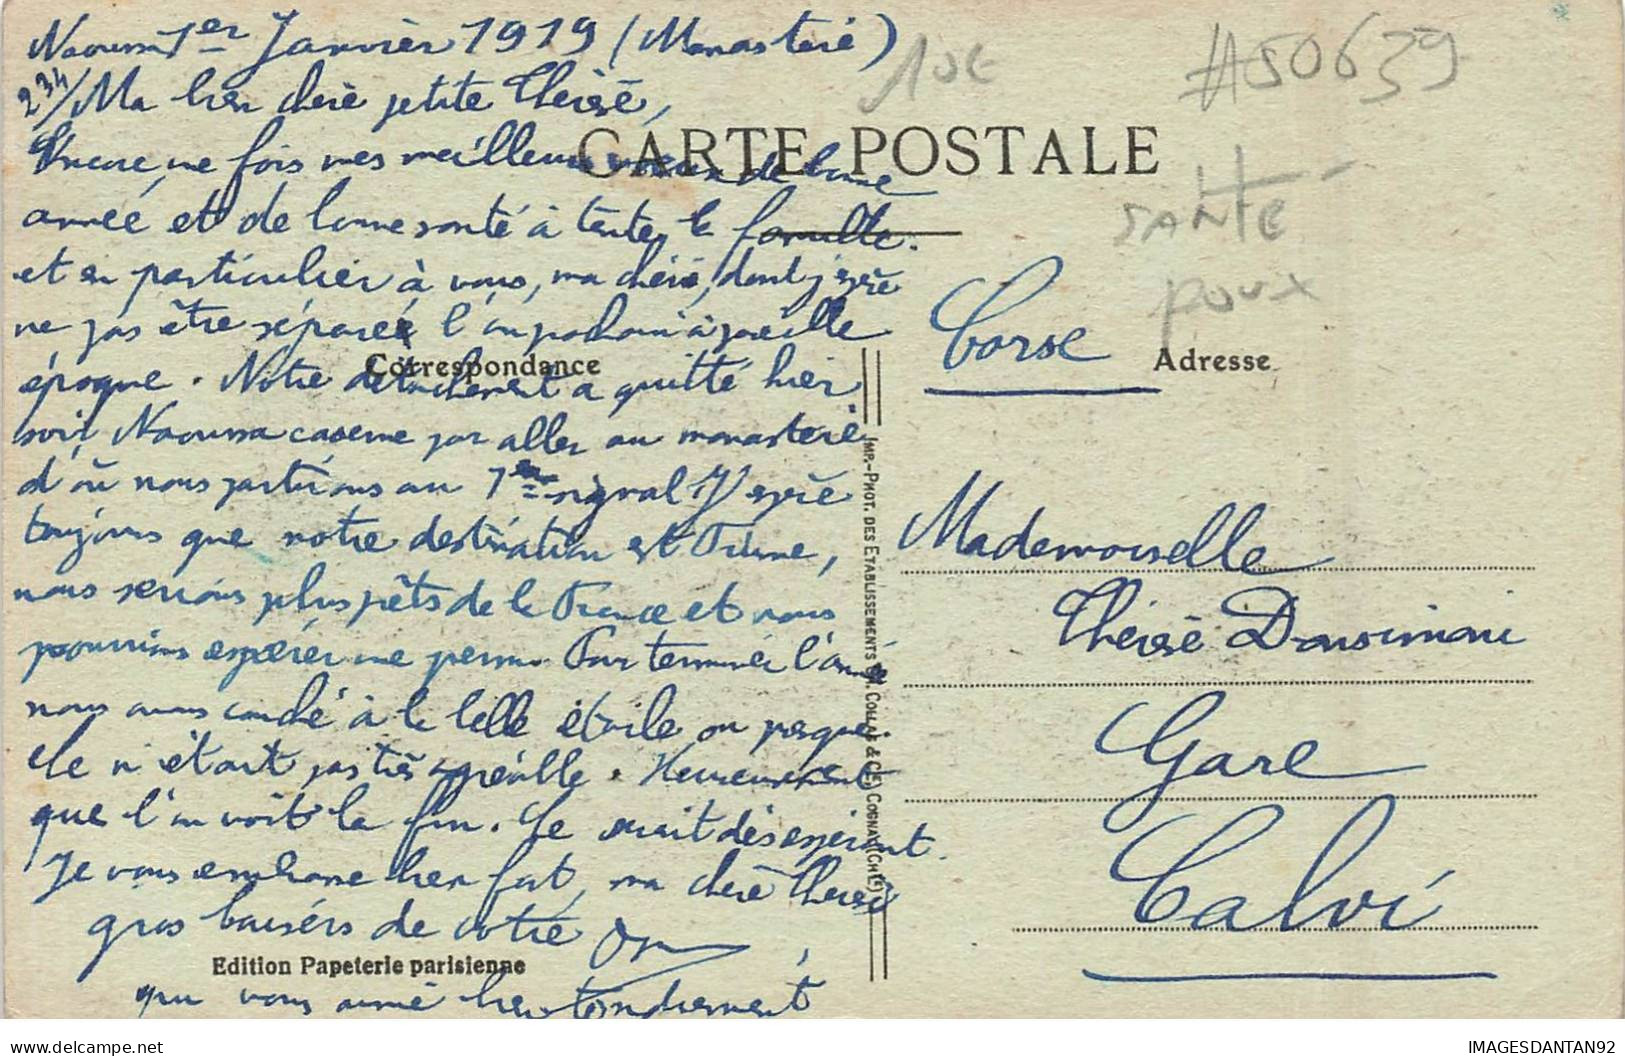 Naoussa 1er Janvier 1919 (Monastère)
234/ Ma bien chère petite Thérèse,
Encore une fois mes meilleurs voeux de bonne
année et de bonne santé à toute la famille
et en particulier à vous, ma chérie, dont j'espère
ne pas être séparé l'an prochain à pareille
époque. Notre détachement a quitté hier
soir Naoussa caserne par aller au monastère
d'où nous partirons au 1er signal. J'espère
toujours que notre destination est Fiume,
nous serions plus près de la France et nous
pourrions espérer une perm. Pour terminer l'année
nous avons couché à la belle étoile ou presque.
Ce n'était pas très agréable. Heureusement
que l'on voit la fin. Ce serait désespérant.
Je vous embrasse bien fort, ma chère Thérèse
gros baisers de votre
qui vous aime bien tendrement
CARTE POSTALE
Correspondance
Adresse
Edition Papeterie parisienne
IMP.-PHOT. DES ETABLISSEMENTS COLLAS & Cie, COGNAC (CHte)
10€
#50639
SANTE
poux
Corse
Mademoiselle
Thérèse
Gare
Calvi
delcampe.net
IMAGESDANTAN92